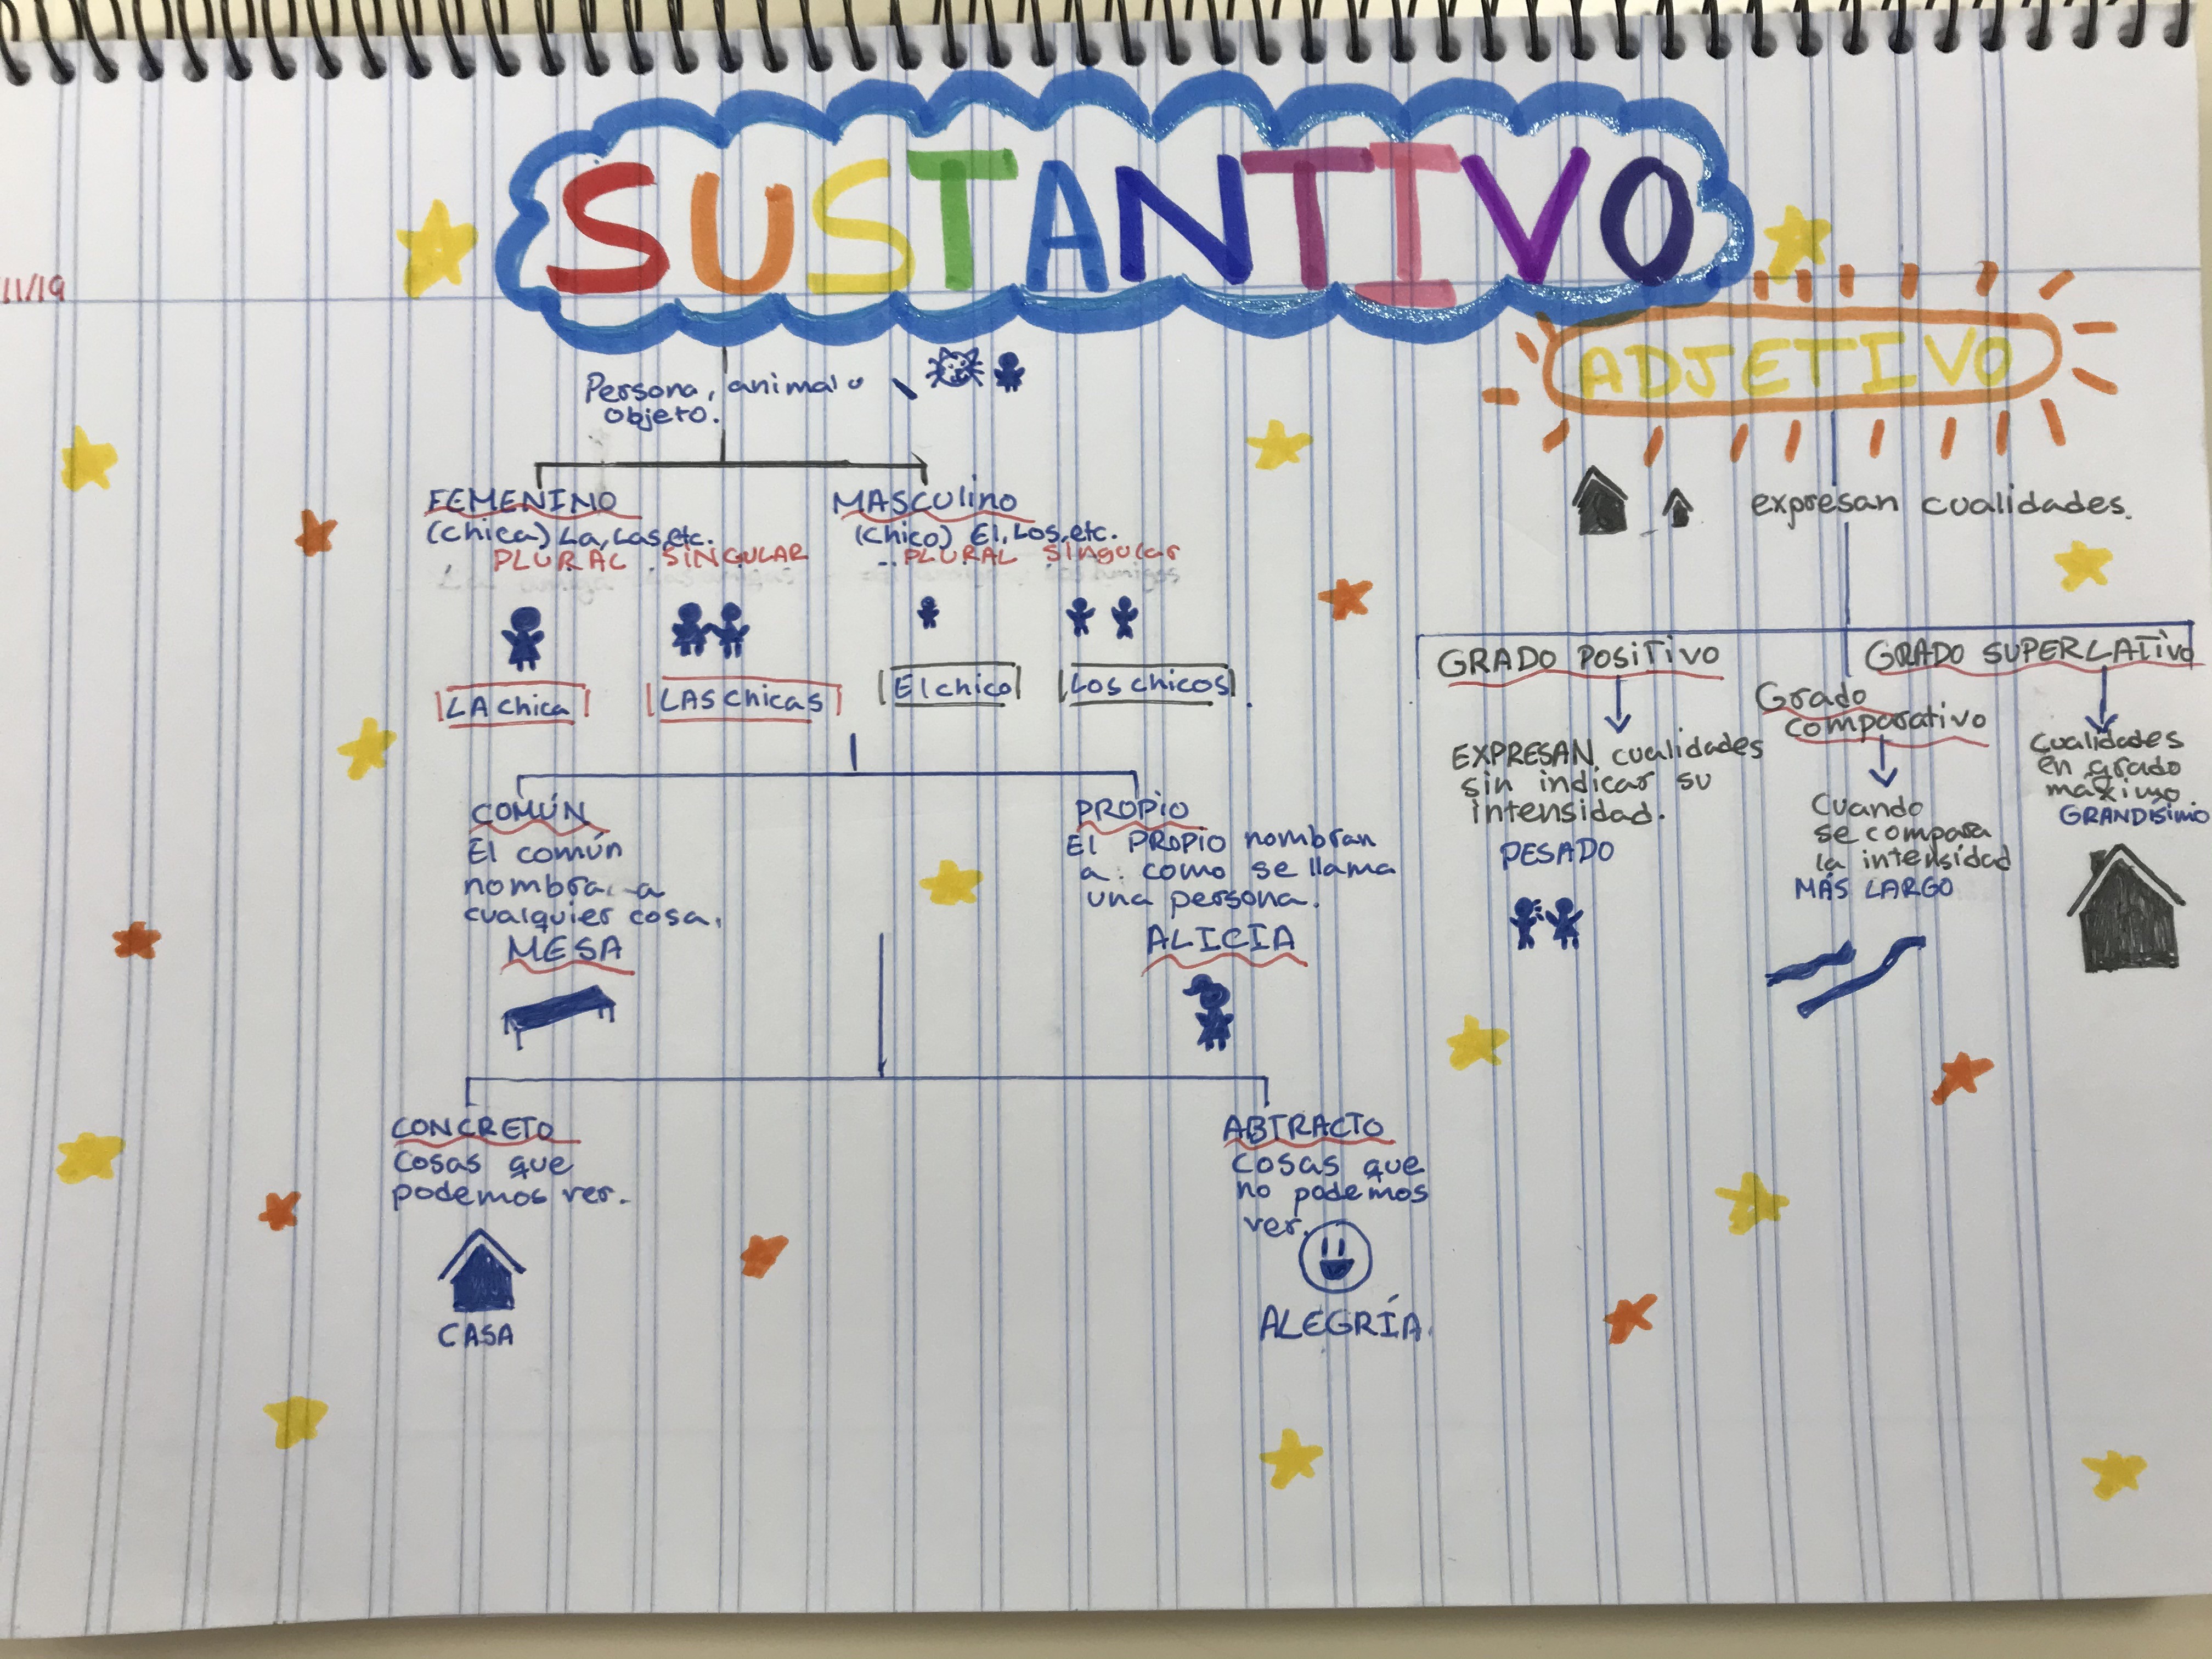 SUSTANTIVO
11/19
ADJETIVO
Persona, animal u
objeto.
FEMENINO
(chica) La, Las, etc.
PLURAL SINGULAR
MASCUlino
(chico) El, Los, etc.
PLURAL SINgular
LA chica
LAS chicas
El chico
Los chicos
COMÚN
El común
nombra a
cualquier cosa.
MESA
PROPIO
El PROPIO nombran
a: como se llama
una persona.
ALICIA
CONCRETO
Cosas que
podemos ver.
CASA
ABTRACTO
Cosas que
no podemos
ver.
ALEGRÍA
expresan cualidades.
GRADO POSITIVO
EXPRESAN cualidades
sin indicar su
intensidad.
PESADO
Grado
comparativo
Cuando
se compara
la intensidad
MÁS LARGO
GRADO SUPERLATIVO
Cualidades
en grado
máximo.
GRANDÍSIMO